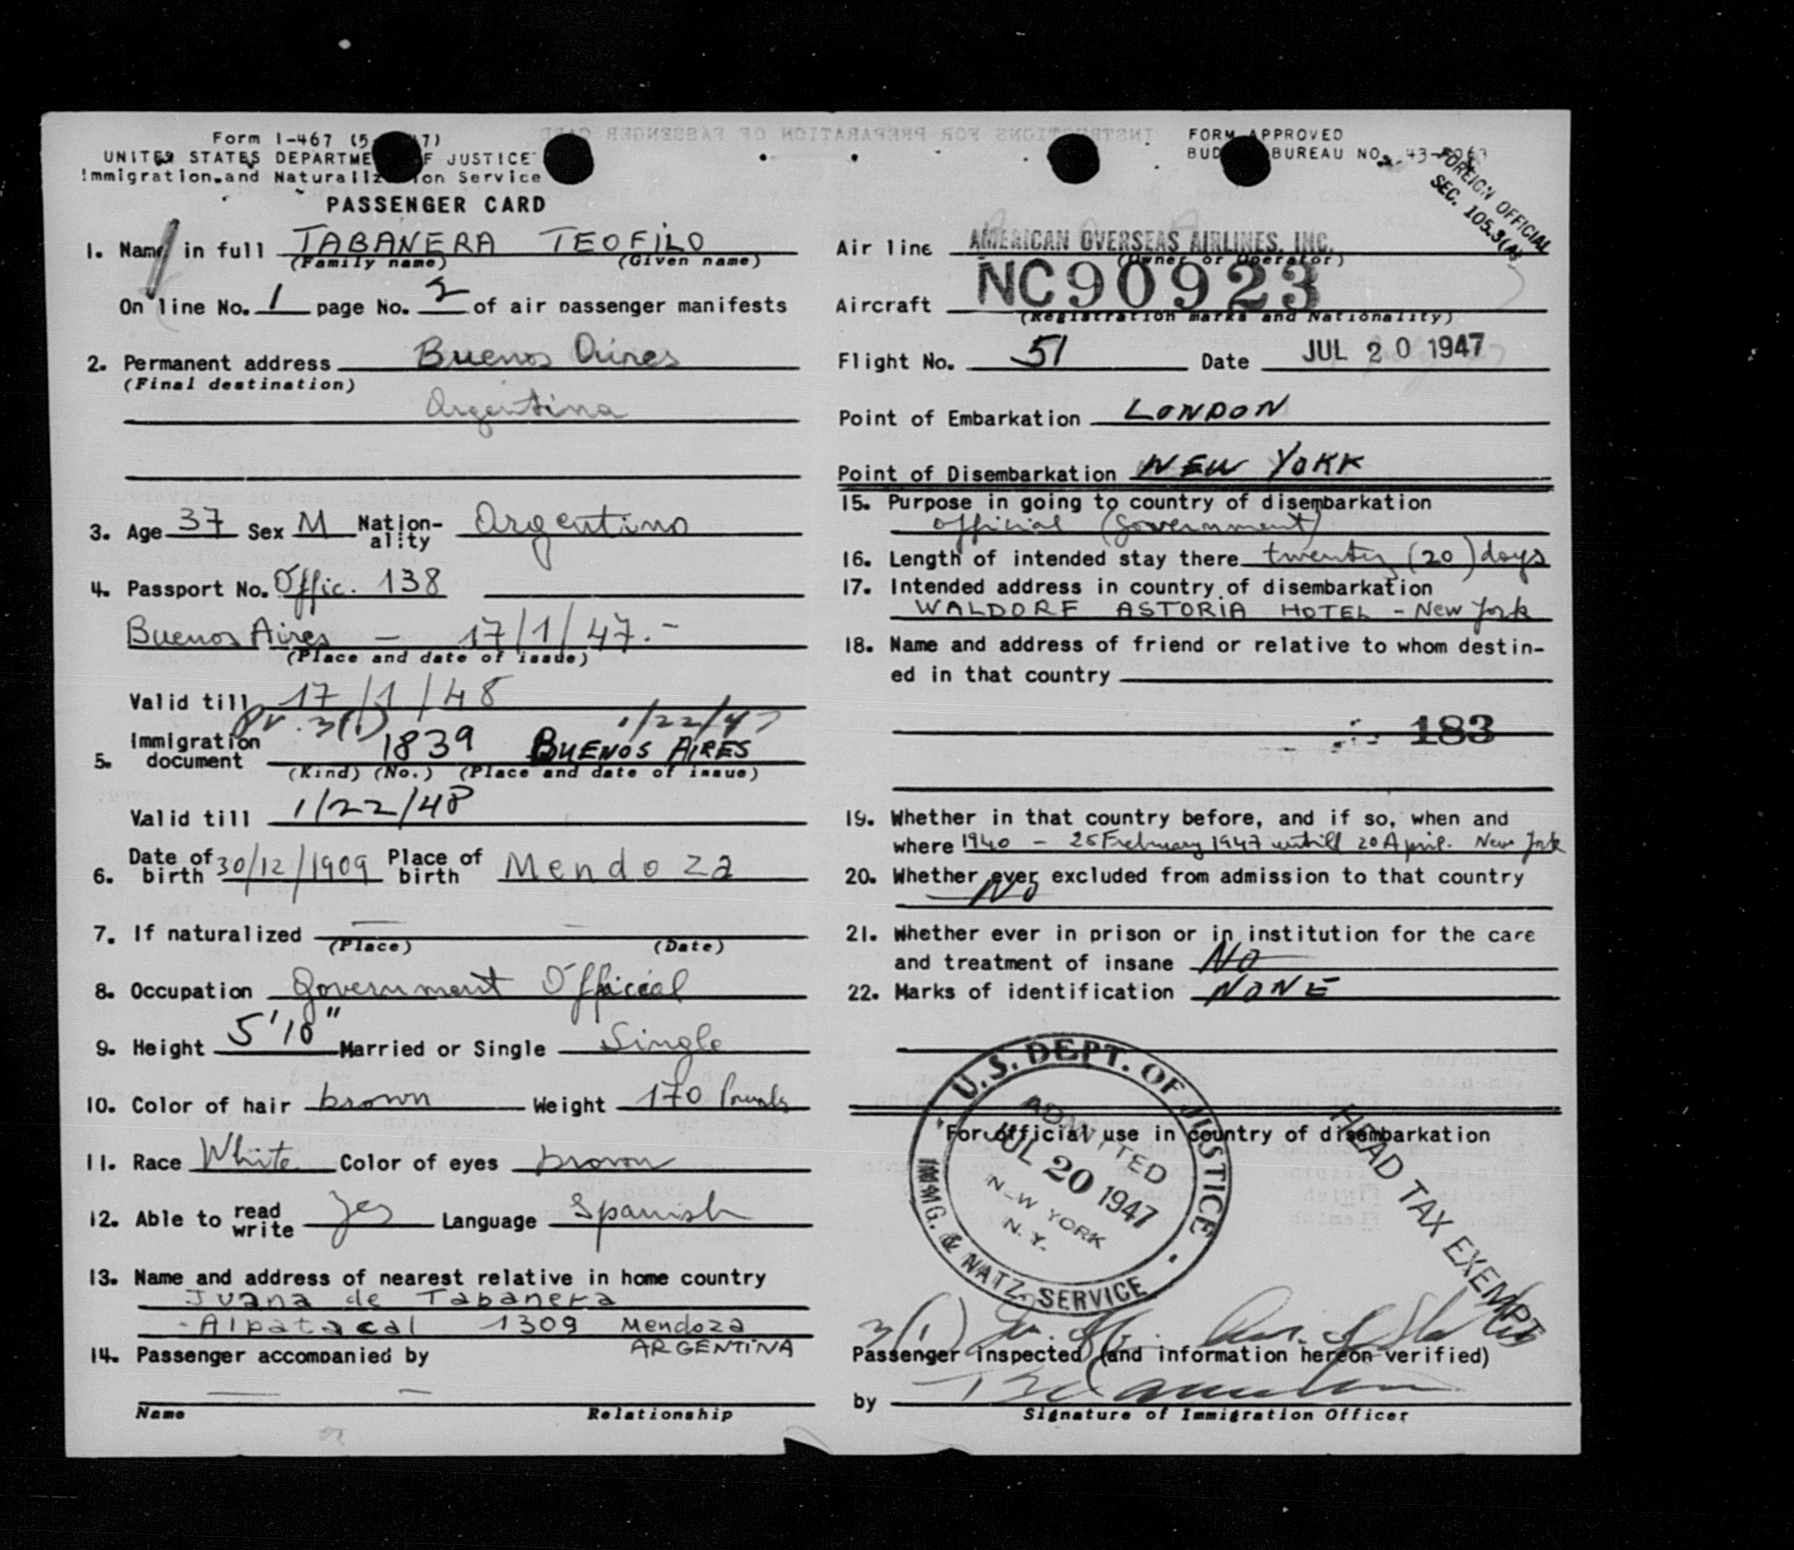 Form I-467 (5 7)
UNITED STATES DEPARTME F JUSTICE
Immigration and Naturaliz on Service
PASSENGER CARD
1. Name in full TABANERA TEOFILO
(Family name) (Given name)
On line No. 1 page No. 2 of air passenger manifests
2. Permanent address Buenos Aires
(Final destination)
Argentina
3. Age 37 Sex M Nation-ality Argentino
4. Passport No. Offic. 138
Buenos Aires — 17/1/47.-
(Place and date of issue)
Valid till 17/1/48
PV. 3(1) 1/22/47
5. Immigration document 1839 BUENOS AIRES
(Kind) (No.) (Place and date of issue)
Valid till 1/22/48
6. Date of birth 30/12/1909 Place of birth Mendoza
7. If naturalized — —
(Place) (Date)
8. Occupation Government Official
9. Height 5'10" Married or Single Single
10. Color of hair brown Weight 170 Pounds
11. Race White Color of eyes brown
12. Able to read write Yes Language Spanish
13. Name and address of nearest relative in home country
Juana de Tabanera
- Alpatacal 1309 Mendoza
ARGENTINA
14. Passenger accompanied by
— —
Name Relationship
INSTRUCTIONS FOR PREPARATION OF PASSENGER CARD
FORM APPROVED
BUD BUREAU NO. 43-
FOREIGN OFFICIAL
SEC. 105.3(A)
Air line AMERICAN OVERSEAS AIRLINES, INC.
(Owner or Operator)
Aircraft NC90923
(Registration marks and Nationality)
Flight No. 51 Date JUL 20 1947
Point of Embarkation LONDON
Point of Disembarkation NEW YORK
15. Purpose in going to country of disembarkation
official (government)
16. Length of intended stay there twenty (20) days
17. Intended address in country of disembarkation
WALDORF ASTORIA HOTEL - New York
18. Name and address of friend or relative to whom destin-
ed in that country
183
19. Whether in that country before, and if so, when and
where 1940 - 25 February 1947 untill 20 April. New York
20. Whether ever excluded from admission to that country
No
21. Whether ever in prison or in institution for the care
and treatment of insane No
22. Marks of identification NONE
For official use in country of disembarkation
U.S. DEPT. OF JUSTICE
ADMITTED
JUL 20 1947
NEW YORK
N.Y.
IMMG. & NATZ. SERVICE
HEAD TAX EXEMPT
3(1)
Passenger inspected (and information hereon verified)
by
Signature of Immigration Officer